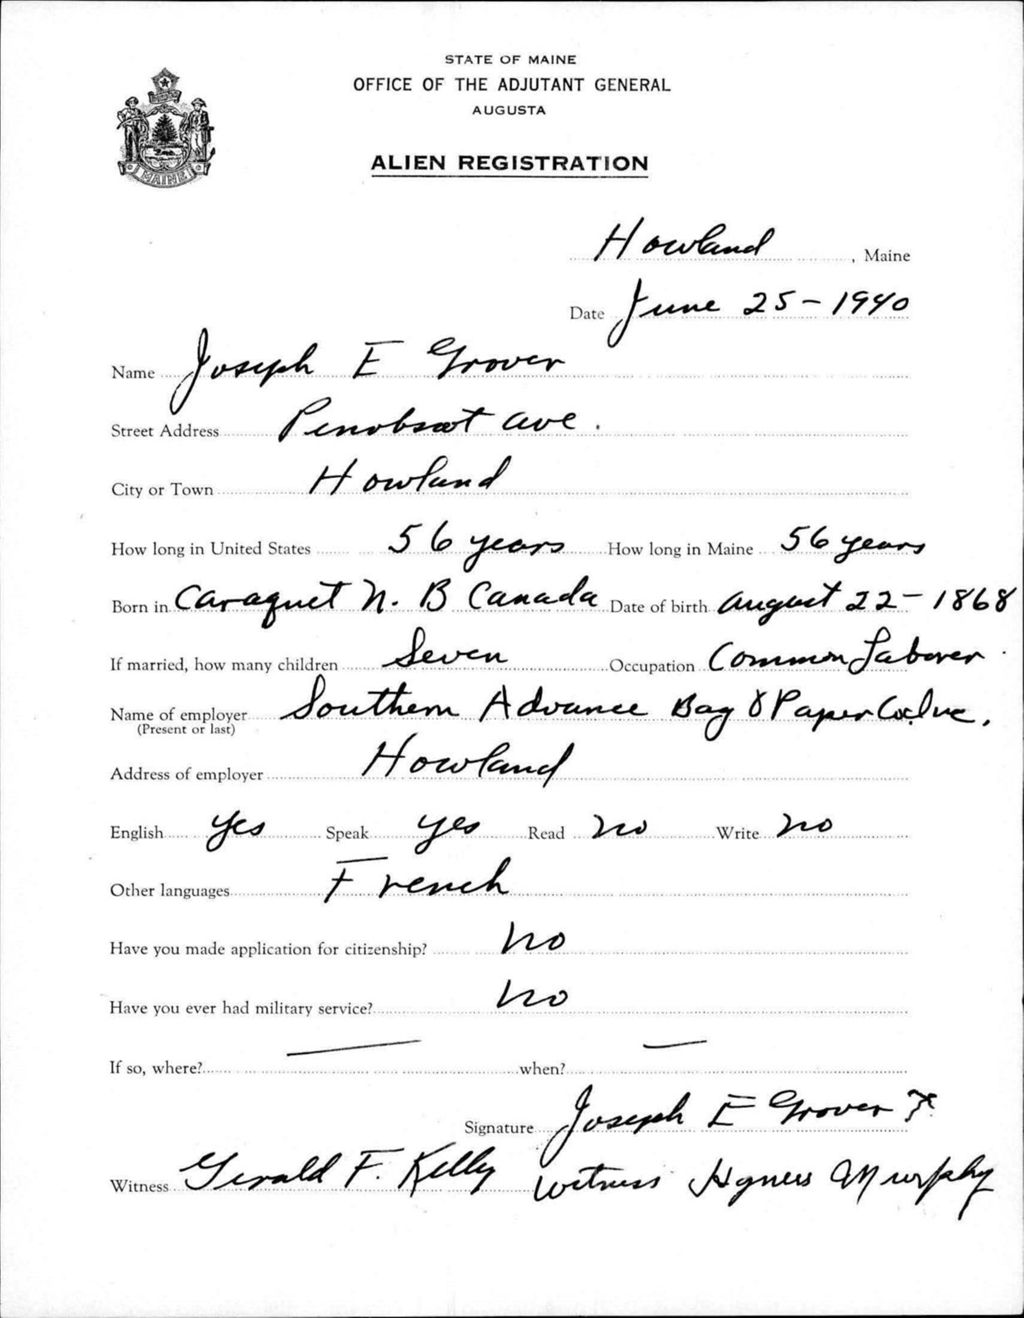 STATE OF MAINE
OFFICE OF THE ADJUTANT GENERAL
AUGUSTA
ALIEN REGISTRATION
MAINE
Howland, Maine
Date June 25-1940
Name Joseph E Grover
Street Address Penobscot ave.
City or Town Howland
How long in United States 56 years How long in Maine 56 years
Born in Caraquet N. B Canada Date of birth august 22-1868
If married, how many children Seven Occupation Common Laborer
Name of employer Southern Advance Bag & Paper Co. Inc.
(Present or last)
Address of employer Howland
English yes Speak yes Read no Write no
Other languages French
Have you made application for citizenship? no
Have you ever had military service? no
If so, where? — when? —
Signature Joseph E Grover X
Witness Gerald F. Kelly witness Agnes Murphy